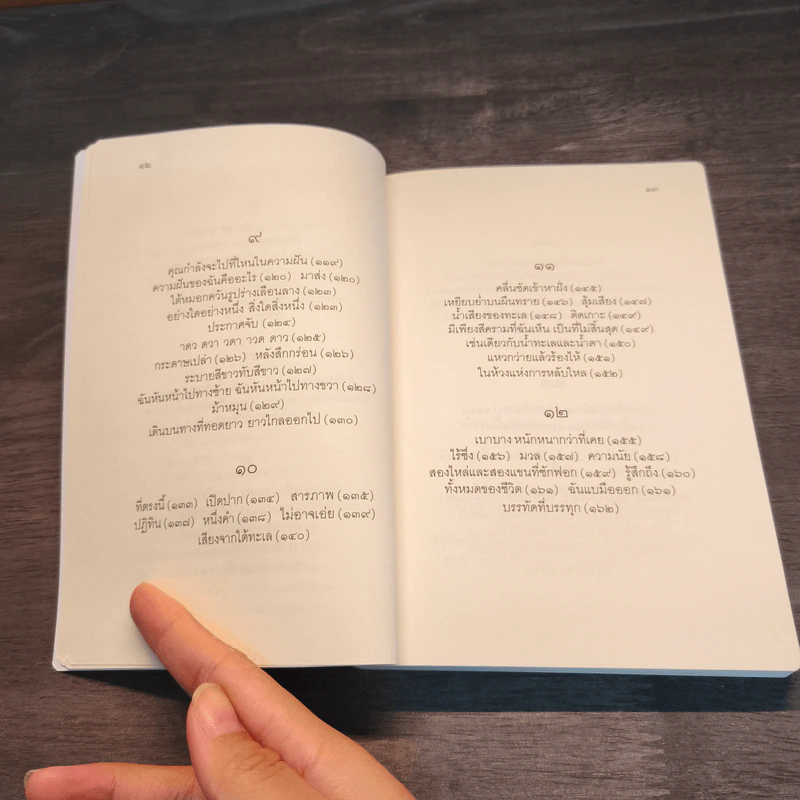 ๑๒
๙
คุณกำลังจะไปที่ไหนในความฝัน (๑๑๙)
ความฝันของฉันคืออะไร (๑๒๐) มาส่ง (๑๒๐)
ใต้หมอกควันรูปร่างเลือนลาง (๑๒๓)
อย่างใดอย่างหนึ่ง สิ่งใดสิ่งหนึ่ง (๑๒๓)
ประกาศจับ (๑๒๔)
าดว ดวา วดา าวด ดาว (๑๒๕)
กระดาษเปล่า (๑๒๖) หลังสึกกร่อน (๑๒๖)
ระบายสีขาวทับสีขาว (๑๒๗)
ฉันหันหน้าไปทางซ้าย ฉันหันหน้าไปทางขวา (๑๒๘)
ม้าหมุน (๑๒๙)
เดินบนทางที่ทอดยาว ยาวไกลออกไป (๑๓๐)
๑๐
ที่ตรงนี้ (๑๓๓) เปิดปาก (๑๓๔) สารภาพ (๑๓๕)
ปฏิทิน (๑๓๗) หนึ่งคำ (๑๓๘) ไม่อาจเอ่ย (๑๓๙)
เสียงจากใต้ทะเล (๑๔๐)
๑๓
๑๑
คลื่นซัดเข้าหาฝั่ง (๑๔๕)
เหยียบย่ำบนผืนทราย (๑๔๖) สุ้มเสียง (๑๔๗)
น้ำเสียงของทะเล (๑๔๘) ติดเกาะ (๑๔๙)
มีเพียงสีครามที่ฉันเห็น เป็นที่ไม่สิ้นสุด (๑๔๙)
เช่นเดียวกับน้ำทะเลและน้ำตา (๑๕๐)
แหวกว่ายแล้วร้องไห้ (๑๕๑)
ในห้วงแห่งการหลับใหล (๑๕๒)
๑๒
เบาบาง หนักหนากว่าที่เคย (๑๕๕)
ไร้ซึ่ง (๑๕๖) มวล (๑๕๗) ความนัย (๑๕๘)
สองไหล่และสองแขนที่ซักฟอก (๑๕๙) รู้สึกถึง (๑๖๐)
ทั้งหมดของชีวิต (๑๖๑) ฉันแบมือออก (๑๖๑)
บรรทัดที่บรรทุก (๑๖๒)